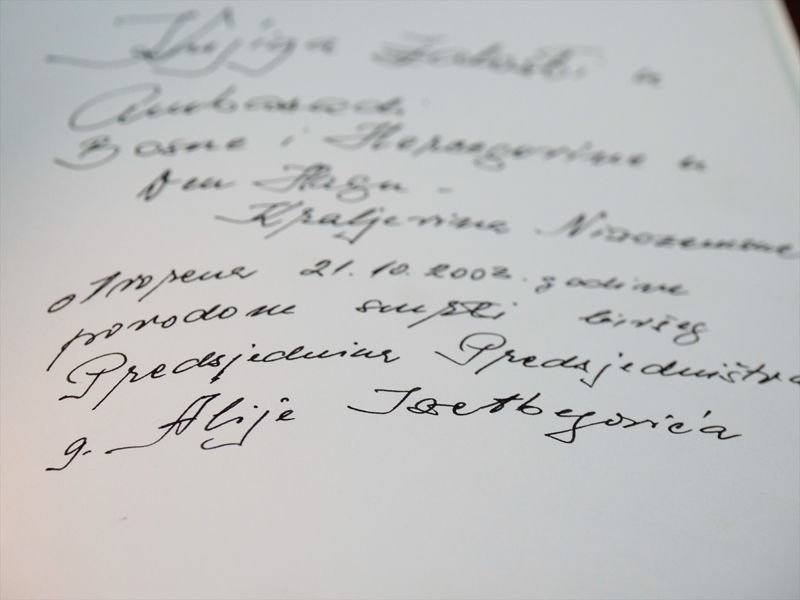 Knjiga žalosti u
Ambasadi
Bosne i Hercegovine u
Den Hagu -
Kraljevina Nizozemska
otvorena 21.10.2002. godine
povodom smrti bivšeg
Predsjednika Predsjedništva
g. Alije Izetbegovića